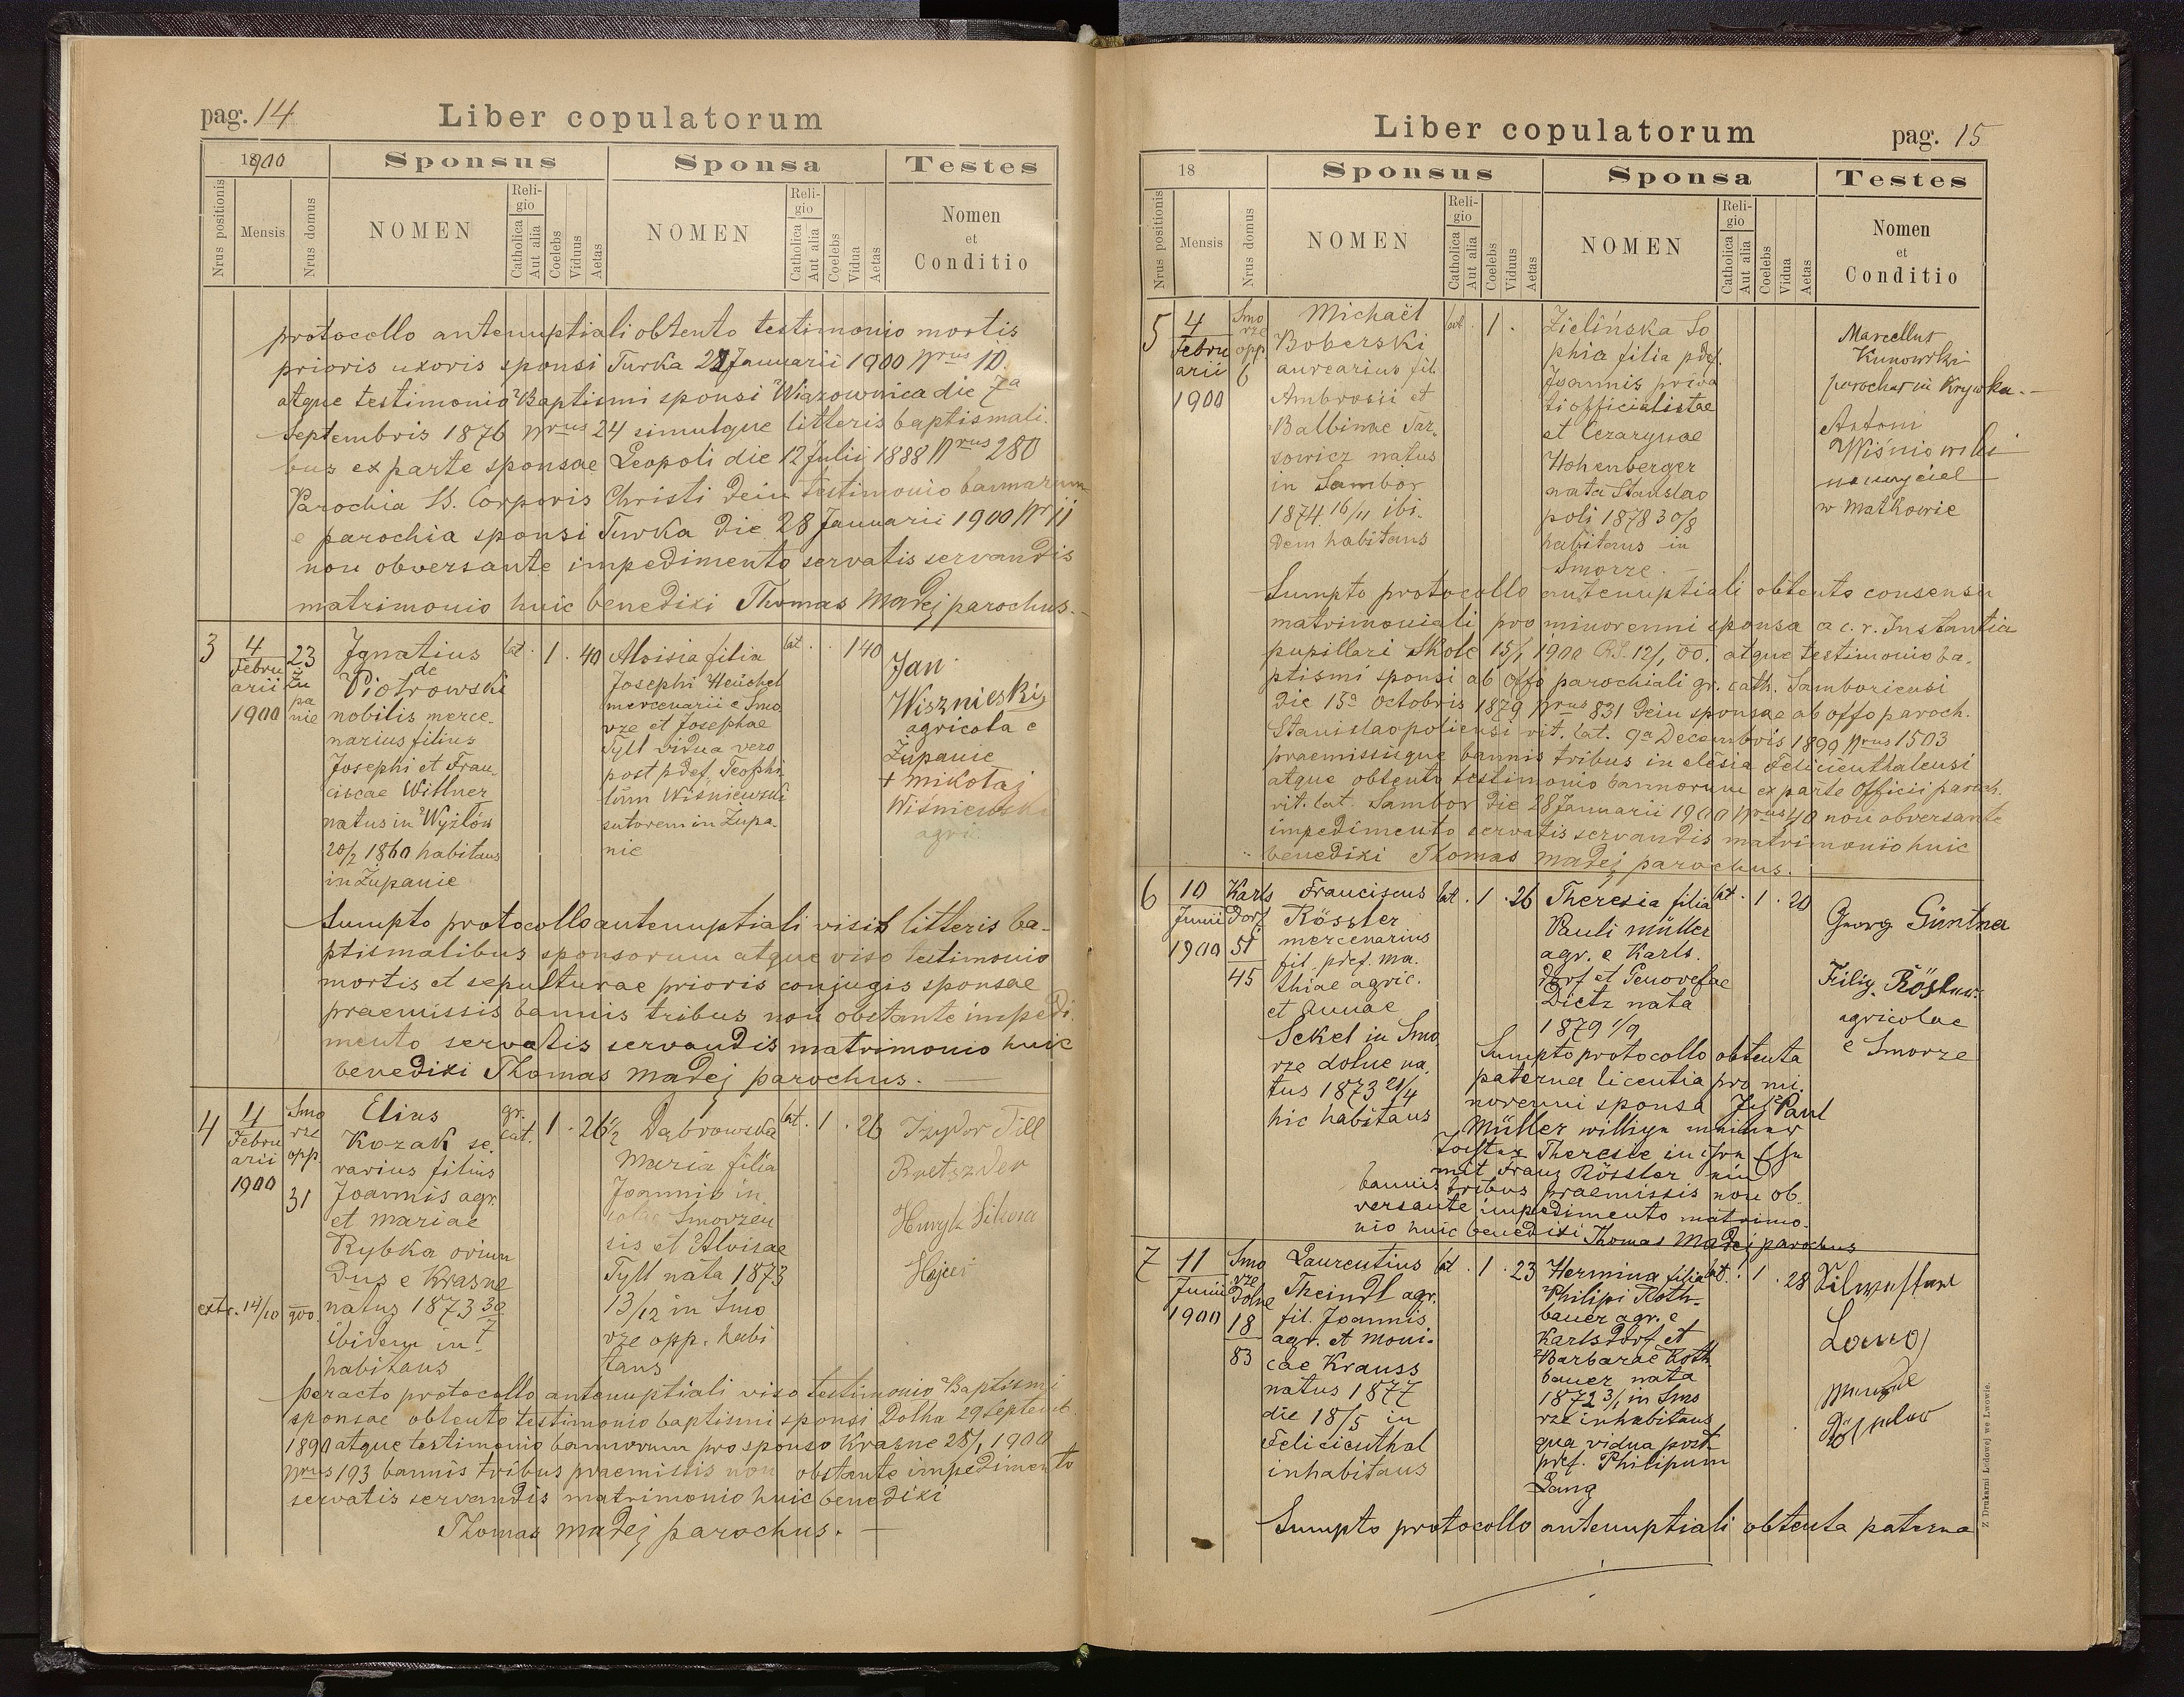 pag. 14
Liber copulatorum
1900
Sponsus
Sponsa
Testes
Nrus positionis
Mensis
Nrus domus
NOMEN
Religio
Catholica
Aut alia
Coelebs
Viduus
Aetas
NOMEN
Religio
Catholica
Aut alia
Coelebs
Vidua
Aetas
Nomen
et
Conditio
protocollo antenuptiali obtento testimonio mortis
prioris uxoris sponsi Turka Januarii 1900 Nrus 10.
atque testimonio Baptismi sponsi Wiązownica die 7a
Septembris 1876 Nrus 24 simulque litteris baptismali-
bus ex parte sponsae Leopoli die 12 Julii 1888 Nrus 280
Parochia SS. Corporis Christi dein testimonio bannorum
e parochia sponsi Turka die 28 Januarii 1900 Nr 11
non obversante impedimento servatis servandis
matrimonio huic benedixi Thomas Madej parochus.
3
4
Febru
arii
1900
23
Żu
pa
nie
Ignatius
de
Piotrowski
nobilis merce-
narius filius
Josephi et Fran-
ciscae Willner
natus in Wyżłów
20/2 1860 habitans
in Żupanie
lat. 1 . 40
Aloisia filia
Josephi Heüchel
mercenarii e Smo
rze et Josephae
Tyll vidua vero
post pdef. Teophi
lum Wiśniewski
sutorem in Żupa-
nie
lat. . 1 40
Jan
Wisznieski
agricola e
Żupanie
+ Mikołaj
Wiśniewski
agric.
Sumpto protocollo antenuptiali visis litteris ba-
ptismalibus sponsorum atque viso testimonio
mortis et sepulturae prioris conjugis sponsae
praemissis bannis tribus non obstante impedi-
mento servatis servandis matrimonio huic
benedixi Thomas Madej parochus.
4
4
Febru
arii
1900
Smo
rze
opp.
31
Elias
Kozak se
rarius filius
Joannis agr.
et Mariae
Rybka oriun
dus e Krasne
natus 1873 30
7
ibidem in-
habitans
extr. 14/10 900.
gr.
cat. 1 . 26 1/2
Dąbrowska
Maria filia
Joannis in
colae Smorzen
sis et Aloisae
Tyll nata 1873
13/12 in Smo
rze opp. habi
tans
lat. 1 . 26
Izydor Till
Henryk Sikora
Peracto protocollo antenuptiali viso testimonio Baptismi
sponsae obtento testimonio baptismi sponsi Dolha 29 Septemb
1890 atque testimonio bannorum pro sponso Krasne 28/1 1900
Nrus 193 bannis tribus praemissis non obstante impedimento
servatis servandis matrimonio huic benedixi
Thomas Madej parochus.
Liber copulatorum
pag. 15
18
Sponsus
Sponsa
Testes
Nrus positionis
Mensis
Nrus domus
NOMEN
Religio
Catholica
Aut alia
Coelebs
Viduus
Aetas
NOMEN
Religio
Catholica
Aut alia
Coelebs
Vidua
Aetas
Nomen
et
Conditio
5
4
Febru
arii
1900
Smo
rze
opp.
6
Michaël
Boberski
aurearius fil.
Ambrosii et
Balbinae Tar-
sowicz natus
in Sambor
1874 16/11 ibi-
dem habitans
lat. 1 .
Zielińska So
phia filia pdef.
Joannis priva
ti officialistae
et Cezarynae
Hohenberger
nata Stanslao
poli 1878 30/8
habitans in
Smorze.
Marcellus
Kunowski
parochus in Krywka.
Antoni
Wiśniowski
nauczyciel
w Matkowie
Sumpto protocollo antenuptiali obtento consensu
matrimoniali pro minorenni sponsa a c. r. Instantia
pupillari Skole 15/1 1900 atque testimonio ba-
ptismi sponsi ab offo parochiali gr. cath. Samboriensi
die 15a Octobris 1879 Nrus 831 dein sponsae ab offo paroch.
Stanislaopoliensi rit. lat. 9a Decembris 1899 Nrus 1503
praemissisque bannis tribus in elesia Felicienthalensi
atque obtento testimonio bannorum ex parte officii paroch.
rit. lat. Sambor die 28 Januarii 1900 Nrus 40 non obversante
impedimento servatis servandis matrimonio huic
benedixi Thomas Madej parochus.
6
10
Junii
1900
Karls
dorf
51
45
Franciscus
Rössler
mercenarius
fil. pdef. Ma-
thiae agric.
et Annae
Sekel in Smo
rze dolne na
tus 1873 21/4
hic habitans
lat. 1 . 26
Theresia filia
Pauli Müller
agr. e Karls-
dorf et Genovefae
Dietz nata
1879 1/9
lat. 1 . 20
Georg Güntner
Filip Rössler
agricolae
e Smorze
Sumpto protocollo obtenta
paterna licentia pro mi-
norenni sponsa Paul
Müller willige meiner
Tochter Theresie in
mit Franz Rössler ein
bannis tribus praemissis non ob-
versante impedimento matrimo-
nio huic benedixi Thomas Madej parochus
7
11
Junii
1900
Smo
rze
Dolne
18
83
Laurentius
Theindl agr.
fil. Joannis
agr. et Moni-
cae Krauss
natus 1877
die 18/5 in
Felicienthal
inhabitans
lat . 1 . 23
Hermina filia
Philipi Roth-
bauer agr. e
Karlsdorf et
Barbarae Roth
bauer nata
1872 3/1 in Smo
rze inhabitans
qua vidua post
pdef. Philipum
Lang
lat. . 1 . 28
Sumpto protocollo antenuptiali obtenta paterna
Z Drukarni Ludowej we Lwowie.